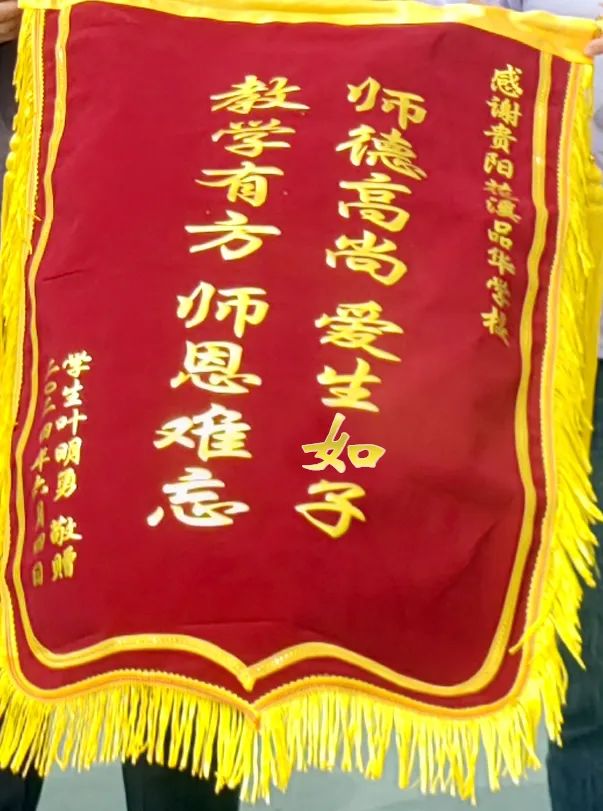 感谢贵阳花溪品华学校
师德高尚 爱生如子
教学有方 师恩难忘
学生叶明勇 敬赠
二〇二四年六月四日